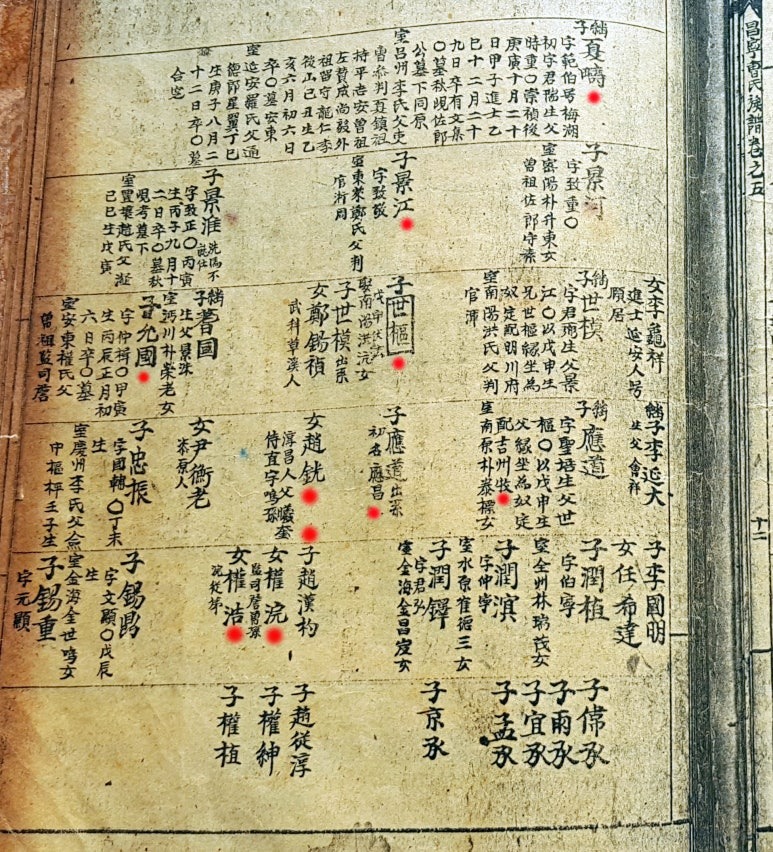 昌寧曺氏族譜卷之五
十二
繼子夏疇
字範伯号梅湖
初字君瑞生父
時重〇崇禎後
庚寅十月二十
日甲子進士乙
巳十二月二十
九日卒有文集
〇墓秋峴佐郎
公墓下同原
室呂州李氏父吏
曹參判真鎮祖
持平 安曾祖
左贊成尚毅外
祖留守龍仁李
後山己丑生乙
亥六月初六日
卒〇墓安東
室延安羅氏父通
德郎星翼丁巳
生庚子八月二
十二日卒〇墓
合窆
子景河
字致重〇
室密陽朴升東女
曾祖佐郎守
子景江
字致敬
室東萊鄭氏父判
官沂周
子景淮
字致正〇丙寅
生丙子九月十
二日卒〇墓秋
峴考墓下
室豊壤趙氏父
己巳生戊寅
女李龜祥
進士延安人号
願居
繼子世模
字君 生父景
江〇以戊申生
兄世樞緣坐爲
奴定配明川府
室南陽洪氏父判
官
子世樞
娶南陽洪沅女
子世模 出系
女鄭錫禎
武科草溪人
繼子著國
生父景洙
室沔川朴崇老女
子允國
字仲 〇甲寅
生丙辰正月初
六日卒〇墓
室安東權氏父
曾祖監司
繼子李延大
生父會祥
繼子應道
字聖培生父世
樞〇以戊申生
父緣坐爲奴定
配吉州牧
室南原朴泰標女
子應道 出系
初名應昌
女趙銑
淳昌人父
侍直字鳴孫
女尹衡老
漆原人
子忠振
字國輔〇丁未
生
室慶州李氏父僉
中樞枰壬子生
子李國明
女任希達
子潤植
字伯寧
室全州林 茂女
子潤濱
字仲寧
室水原崔德三女
子潤鐸
字君弘
室金海金昌 女
子趙漢杓
女權浣
監司 曾孫
女權浩
浣從弟
子錫鼎
字文顯〇戊辰
生
室金海金世鳴女
子錫重
字元顯
子儻承
子雨承
子宜承
子孟承
子京承
子趙從淳
子權紳
子權植